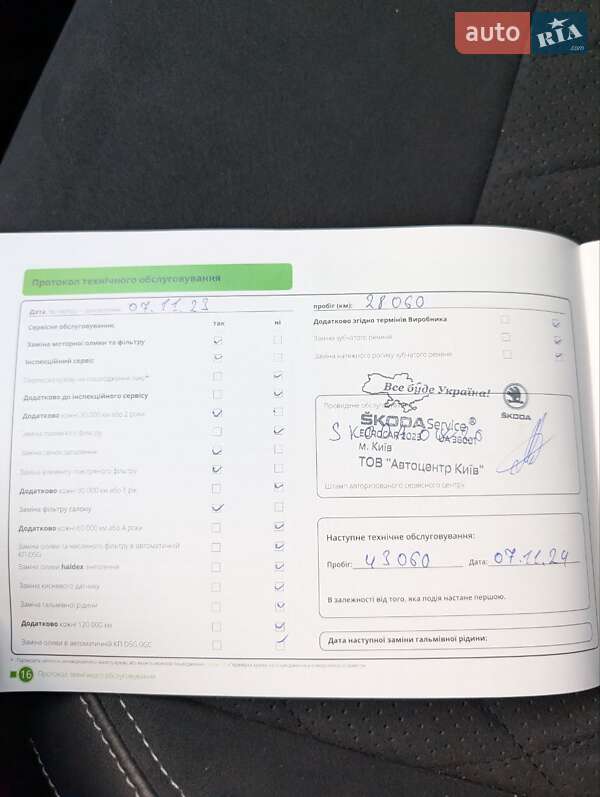 auto RIA.com
Протокол технічного обслуговування
Дата 07.11.23
пробіг (км): 28 060
Сервісне обслуговування: так ні
Заміна моторної оливи та фільтру
Інспекційний сервіс
Додатково до інспекційного сервісу
Додатково кожні 30 000 км або 2 роки
Заміна паливного фільтру
Заміна свічок запалення
Заміна елементу повітряного фільтру
Додатково кожні 30 000 км або 1 рік
Заміна фільтру салону
Додатково кожні 60 000 км або 4 роки
Заміна оливи та масляного фільтру в автоматичній
КП DSG
Заміна оливи haldex зчеплення
Заміна кисневого датчику
Заміна гальмівної рідини
Додатково кожні 120 000 км
Заміна оливи в автоматичній КП DSG
Додатково згідно термінів Виробника
Заміна зубчатого ременя
Заміна натяжного ролику зубчатого ременя
Проведене
Все буде Україна!
ŠKODA
ŠKODA Service®
EUROCAR 2023 UA 38001
м. Київ
ТОВ "Автоцентр Київ"
Штамп авторизованого сервісного центру
Наступне технічне обслуговування:
Пробіг: 43 060 Дата: 07.11.24
В залежності від того, яка подія настане першою.
Дата наступної заміни гальмівної рідини:
16 Протокол технічного обслуговування